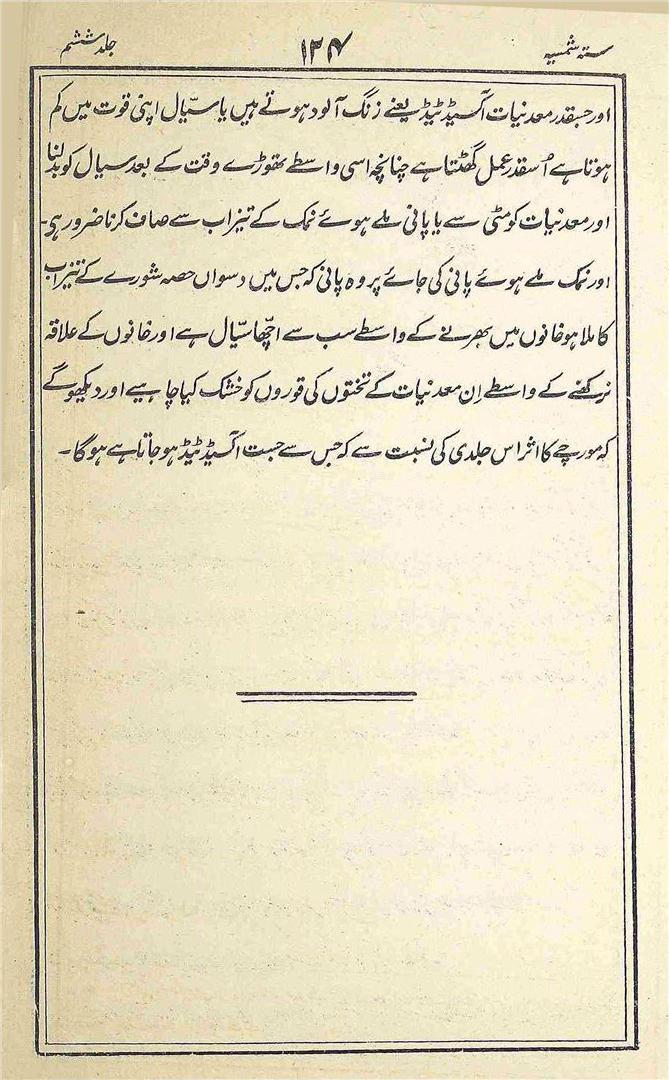 ستہ شمسیہ ۱۲۴ جلد ششم
اور جسقدر معدنیات آکسیڈیٹیڈ یعنے زنگ آلود ہوتے ہیں یا سیّال اپنی قوت میں کم
ہوتا ہے اُسقدر عمل گھٹتا ہے چنانچہ اسی واسطے تھوڑے وقت کے بعد سیال کو بدلنا
اور معدنیات کو مٹی سے یا پانی ملے ہوئے نمک کے تیزاب سے صاف کرنا ضرور ہی۔
اور نمک ملے ہوئے پانی کی جائے پر وہ پانی کہ جس میں دسواں حصہ شورے کے تیزاب
کا ملا ہو خانوں میں بھرنے کے واسطے سب سے اچّھا سیّال ہے اور خانوں کے علاقہ
نرکھنے کے واسطے اِن معدنیات کے تختوں کی قوروں کو خشک کیا چاہیے اور دیکھوگے
کہ مورچے کا اثر اس جلدی کی نسبت سے کہ جس سے جست آکسیڈیٹیڈ ہو جاتا ہے ہوگا۔